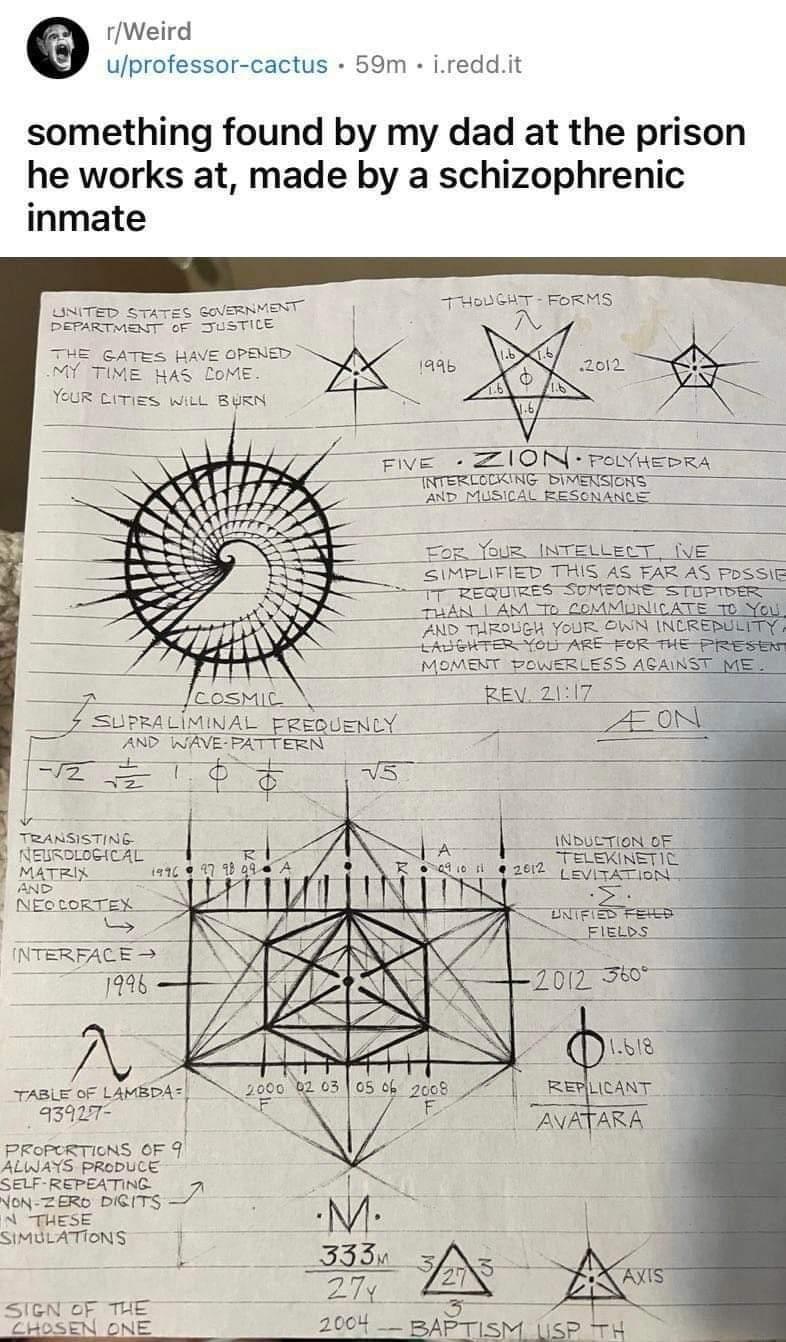 r/Weird
u/professor-cactus • 59m • i.redd.it
something found by my dad at the prison
he works at, made by a schizophrenic
inmate
UNITED STATES GOVERNMENT
DEPARTMENT OF JUSTICE
THE GATES HAVE OPENED
MY TIME HAS COME.
YOUR CITIES WILL BURN
THOUGHT-FORMS
λ
1996
1.6 1.6
ϕ
1.6 1.6
1.6
.2012
FIVE • ZION • POLYHEDRA
INTERLOCKING DIMENSIONS
AND MUSICAL RESONANCE
FOR YOUR INTELLECT, I'VE
SIMPLIFIED THIS AS FAR AS POSSIB
IT REQUIRES SOMEONE STUPIDER
THAN I AM TO COMMUNICATE TO YOU
AND THROUGH YOUR OWN INCREDULITY
LAUGHTER YOU ARE FOR THE PRESENT
MOMENT POWERLESS AGAINST ME.
REV. 21:17
ÆON
COSMIC
SUPRALIMINAL FREQUENCY
AND WAVE-PATTERN
√2 1/√2 1 ϕ √5
TRANSISTING
NEUROLOGICAL
MATRIX
AND
NEOCORTEX
R A
1996 97 98 99 A R 09 10 11 2012
INDUCTION OF
TELEKINETIC
LEVITATION
·Σ·
UNIFIED FEILD
FIELDS
INTERFACE →
1996
2012 360°
λ
ϕ 1.618
TABLE OF LAMBDA=
93927-
2000 02 03 05 06 2008
F F
REPLICANT
AVATARA
PROPORTIONS OF 9
ALWAYS PRODUCE
SELF-REPEATING
NON-ZERO DIGITS
IN THESE
SIMULATIONS
·M·
333M
27Y
3 27 3
3
AXIS
SIGN OF THE
CHOSEN ONE
2004 — BAPTISM USP TH